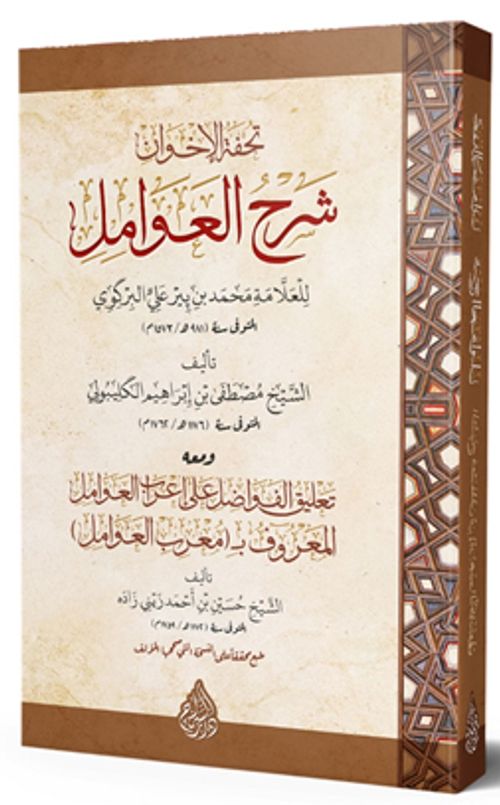 تحفة الإخوان
شرح العوامل
للعلامة محمد بن پير علي البركوي
المتوفى سنة (٩٨١هـ/١٥٧٣م)
تأليف
الشيخ مصطفى بن إبراهيم الكليبولي
المتوفى سنة (١١٧٦هـ/١٧٦٢م)
ومعه
تعليق الفواضل على إعراب العوامل
المعروف بـ (معرب العوامل)
تأليف
الشيخ حسين بن أحمد زيني زاده
المتوفى سنة
طبع محققا على النسخة التي صححها المؤلف